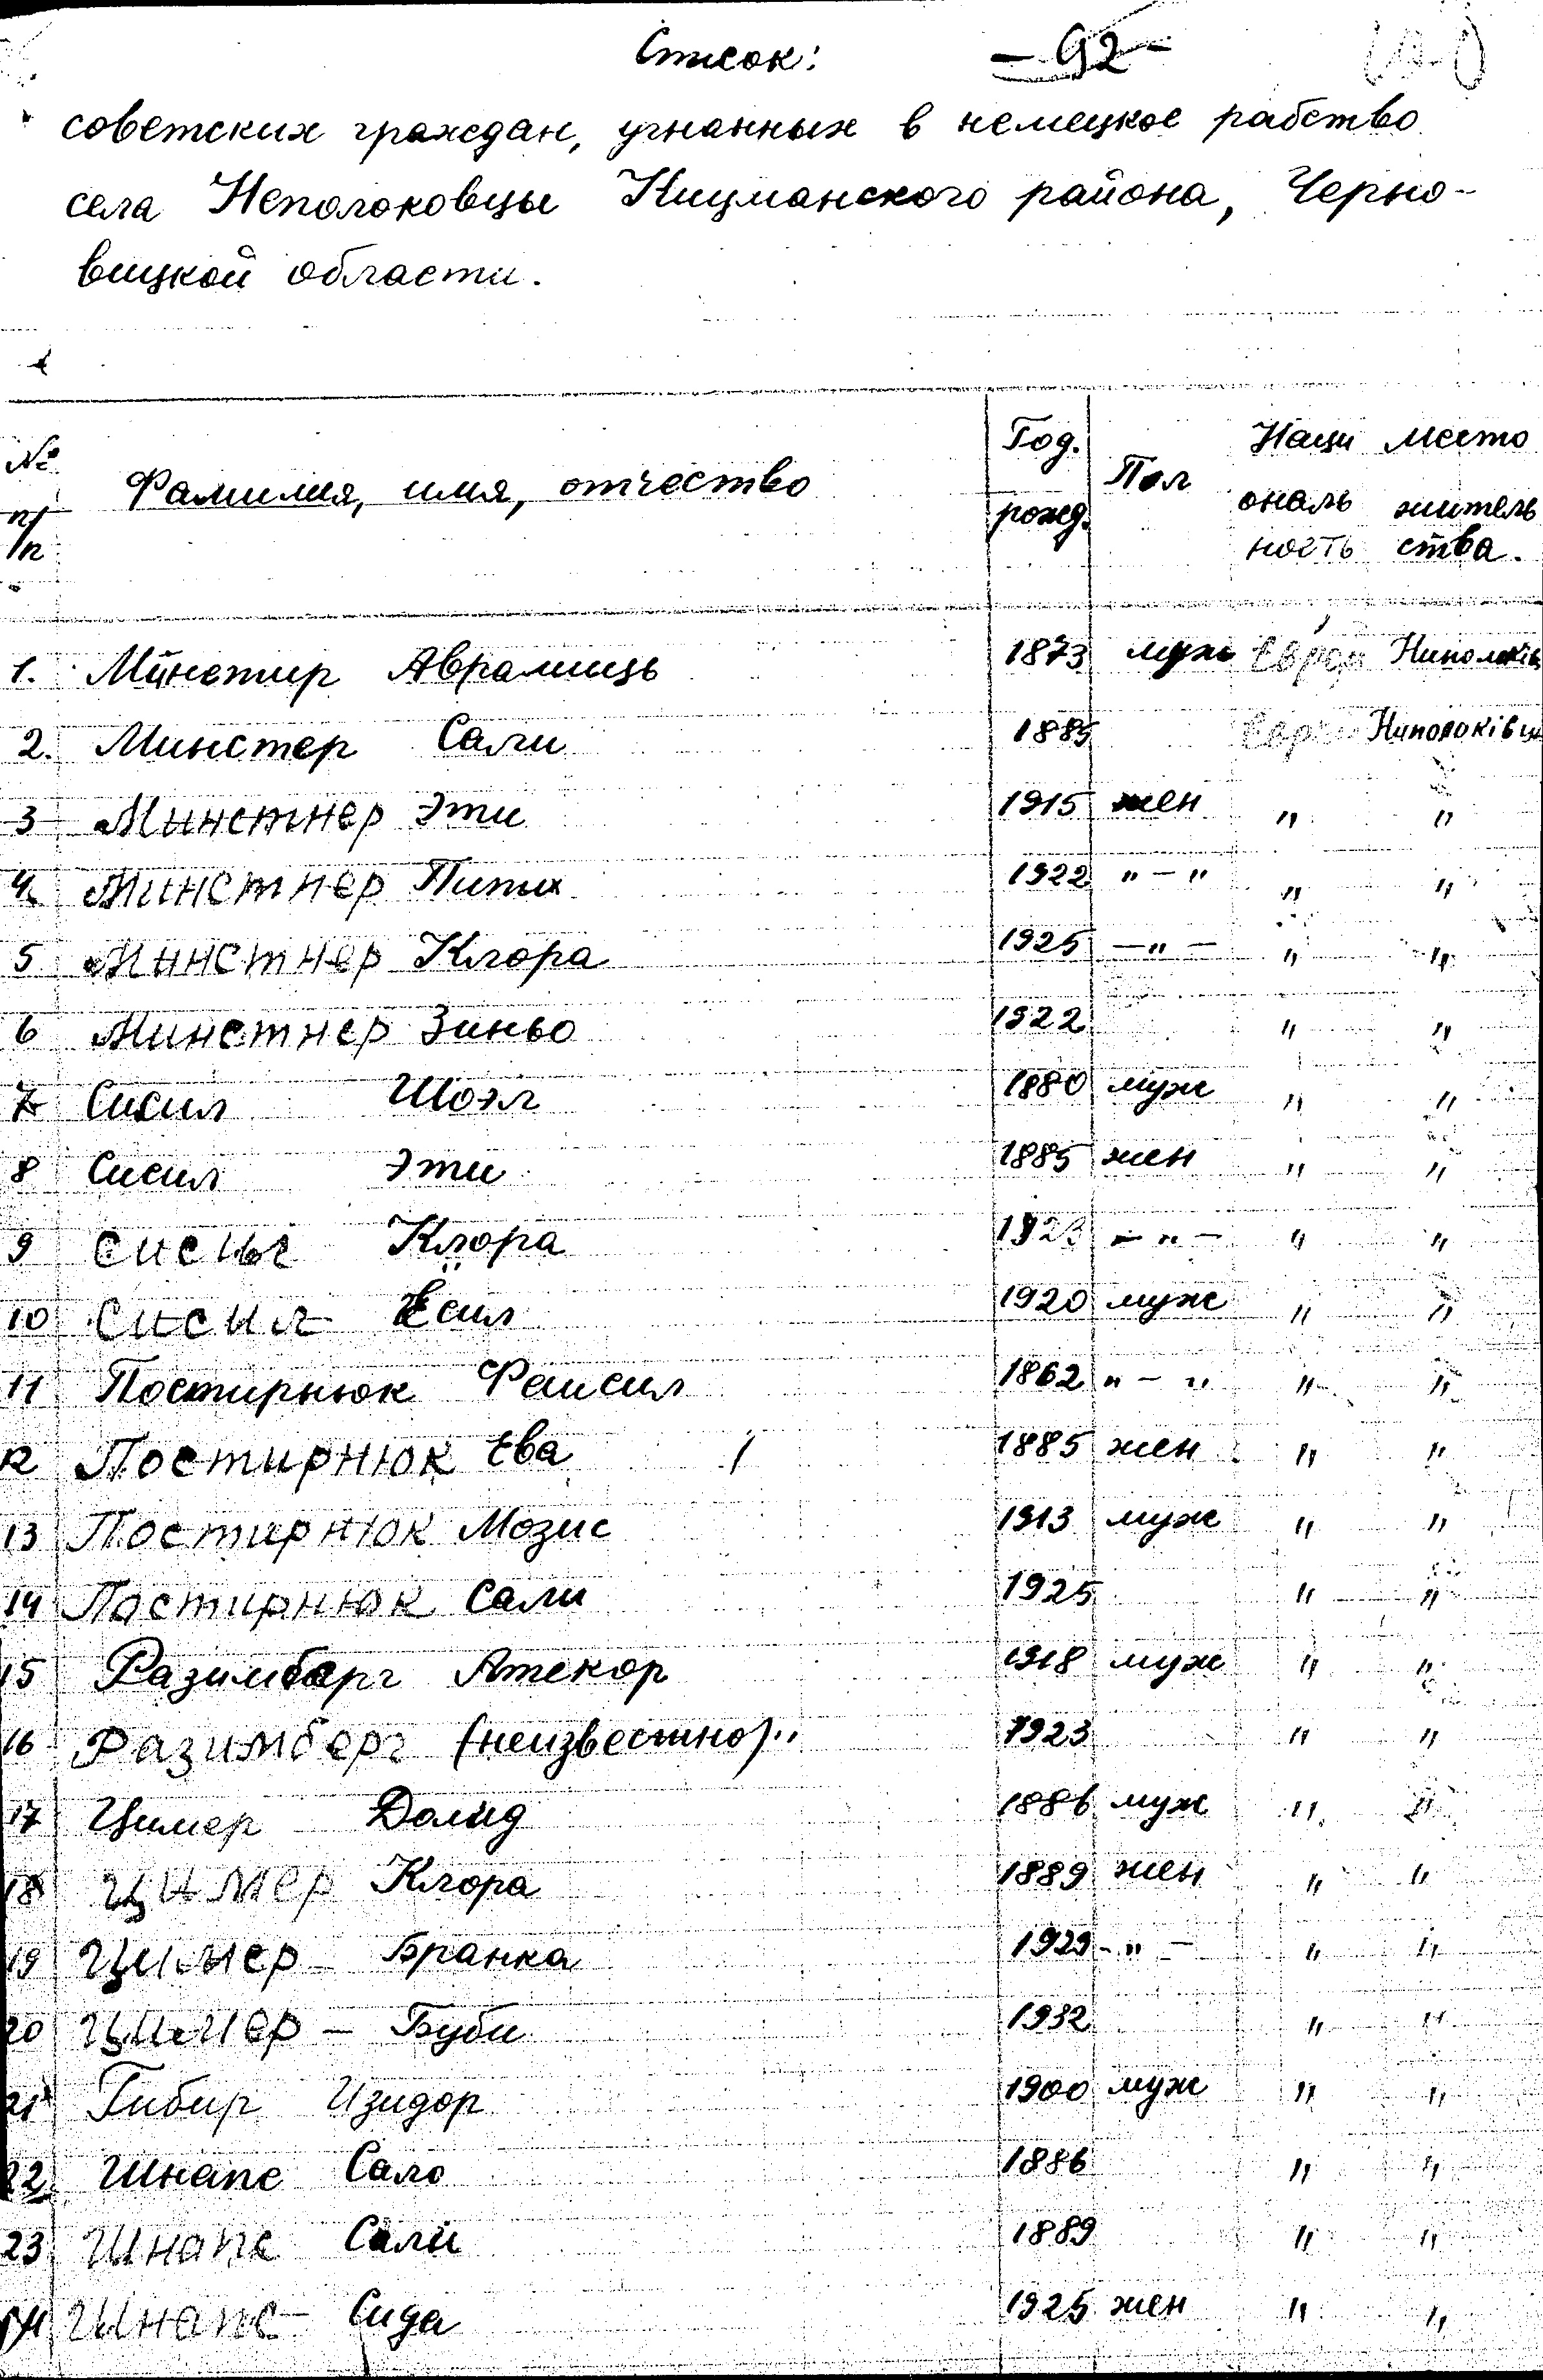 Список: - 92 -
советских граждан, угнанных в немецкое рабство
села Неполоковцы Кицманского района, Черно-
вицкой области.
№ п/п Фамилия, имя, отчество Год. рожд. Пол Наци ональ ность место житель ства.
1. Минстир Аврамиць 1873 муж Еврей Ниполоків
2. Минстер Сали 1885 Еврей Ниполоківці
3 Минстнер Эти 1915 жен " "
4 Минстнер Пипи 1922 " - " " "
5 Минстнер Клора 1925 - " - " "
6 Минстнер Зиньо 1922 " "
7 Сисил Шоэл 1880 муж " "
8 Сисил Эти 1885 жен " "
9 Сисил Клора 1923 - " - " "
10 Сисил Ёсил 1920 муж " "
11 Постирнюк Фаисил 1862 " - " " "
12 Постирнюк Ева 1885 жен " "
13 Постирнюк Мозис 1913 муж " "
14 Постирнюк Сали 1925 " "
15 Разимберг Атекор 1918 муж " "
16 Разимберг (неизвестно) " 1923 " "
17 Цимер Долид 1886 муж " "
18 Цимер Клора 1889 жен " "
19 Цимер - Бранка 1929 - " - " "
20 Цимер - Буби 1932 " "
21 Гибир Изидор 1900 муж " "
22 Шнапс Сало 1886 " "
23 Шнапс Сали 1889 " "
24 Шнапс Сида 1925 жен " "